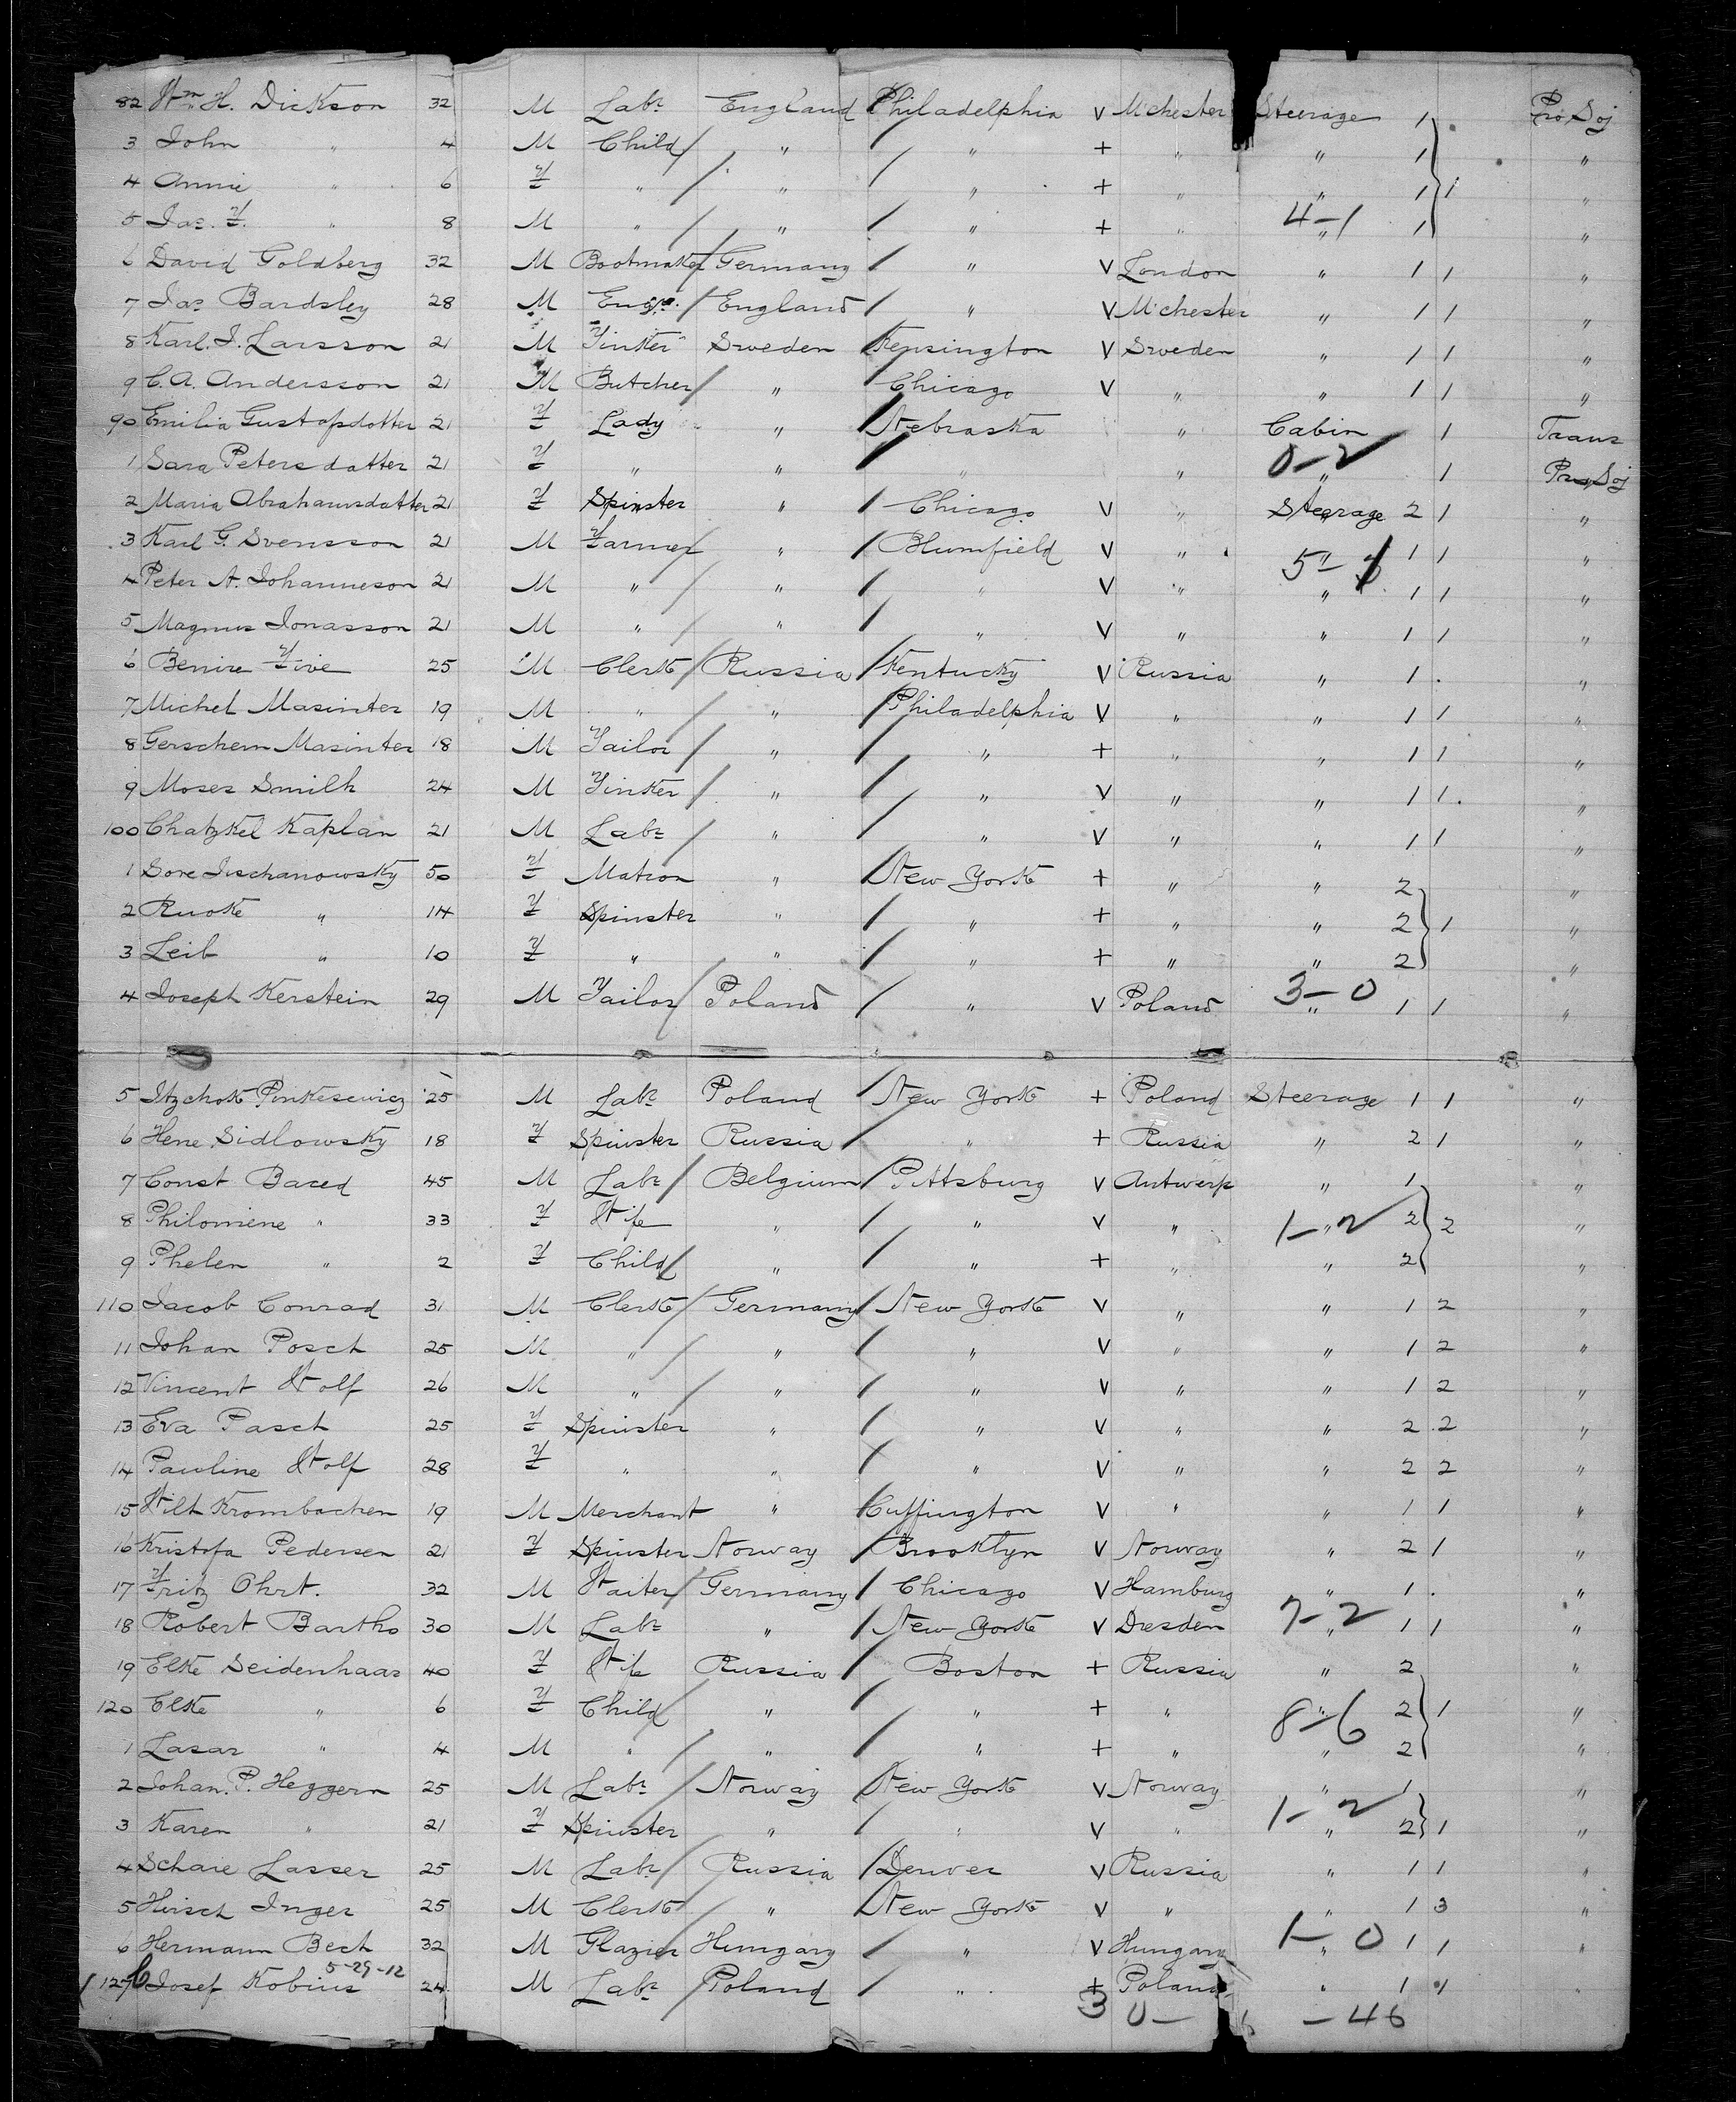 82 Wm H. Dickson 32 M Labr England Philadelphia V M'chester Steerage 1 Pro Soj
3 John " 4 M Child " " + " " 1 "
4 Annie " 6 F " " " + " " 1 1 "
5 Jas. F. " 8 M " " " + " 4-1 " 1 "
6 David Goldberg 32 M Bootmaker Germany " V London " 1 1 "
7 Jas Bardsley 28 M Engr. England " V M'chester " 1 1 "
8 Karl. J. Larsson 21 M Tinker Sweden Kensington V Sweden " 1 1 "
9 C. A. Andersson 21 M Butcher " Chicago V " " 1 1 "
90 Emilia Gustafsdotter 21 F Lady " Nebraska " Cabin 1 Trans
1 Sara Petersdatter 21 F " " " " 0-2 " 1 Pro Soj
2 Maria Abrahamsdatter 21 F Spinster " Chicago V " Steerage 2 1 "
3 Karl G. Svensson 21 M Farmer " Blumfield V " " 5- 1 1 "
4 Peter A. Johanneson 21 M " " " V " " 1 1 "
5 Magnus Jonasson 21 M " " " V " " 1 1 "
6 Benire Five 25 M Clerk Russia Kentucky V Russia " 1 . "
7 Michel Masinter 19 M " " Philadelphia V " " 1 1 "
8 Gerschem Masinter 18 M Tailor " " + " " 1 1 "
9 Moses Smilh 24 M Tinker " " V " " 1 1. "
100 Chatzkel Kaplan 21 M Labr " " V " " 1 1 "
1 Sore Juschanowsky 50 F Matron " New York + " " 2 "
2 Ruoke " 14 F Spinster " " + " " 2 1 "
3 Leib " 10 F " " " + " " 2 "
4 Joseph Kerstein 29 M Tailor Poland " V Poland 3-0 " 1 1 "
5 Itzchok Pinkesewicz 25 M Labr Poland New York + Poland Steerage 1 1 "
6 Hene Sidlowsky 18 F Spinster Russia " + Russia " 2 1 "
7 Const Baced 45 M Labr Belgium Pittsburg V Antwerp " 1 "
8 Philomene " 33 F Wife " " V " 1-2 " 2 2 "
9 Phelen " 2 F Child " " + " " 2 "
110 Jacob Conrad 31 M Clerk Germany New York V " " 1 2 "
11 Johan Posch 25 M " " " V " " 1 2 "
12 Vincent Wolf 26 M " " " V " " 1 2 "
13 Eva Pasch 25 F Spinster " " V " " 2 2 "
14 Pauline Wolf 28 F " " " V " " 2 2 "
15 Wilh Krombachen 19 M Merchant " Cuffington V " " 1 1 "
16 Kristofa Pedersen 21 F Spinster Norway Brooklyn V Norway " 2 1 "
17 Fritz Ohrt. 32 M Waiter Germany Chicago V Hamburg " 1 . "
18 Robert Bartho 30 M Labr " New York V Dresden 7-2 " 1 1 "
19 Elke Seidenhaar 40 F Wife Russia Boston + Russia " 2 "
120 Elke " 6 F Child " " + " 8-6 " 2 1 "
1 Lasar " 4 M " " " + " " 2 "
2 Johan. P. Heggern 25 M Labr Norway New York V Norway " 1 "
3 Karen " 21 F Spinster " " V " 1-2 " 2 1 "
4 Schaie Lasser 25 M Labr Russia Denver V Russia " 1 1 "
5 Hirsch Inger 25 M Clerk " New York V " " 1 3 "
6 Hermann Bech 32 M Glazier Hungary " V Hungary 1-0 " 1 1 "
5-29-12
127 Josef Kobius 24 M Labr Poland " + Poland " 1 1
30- -46